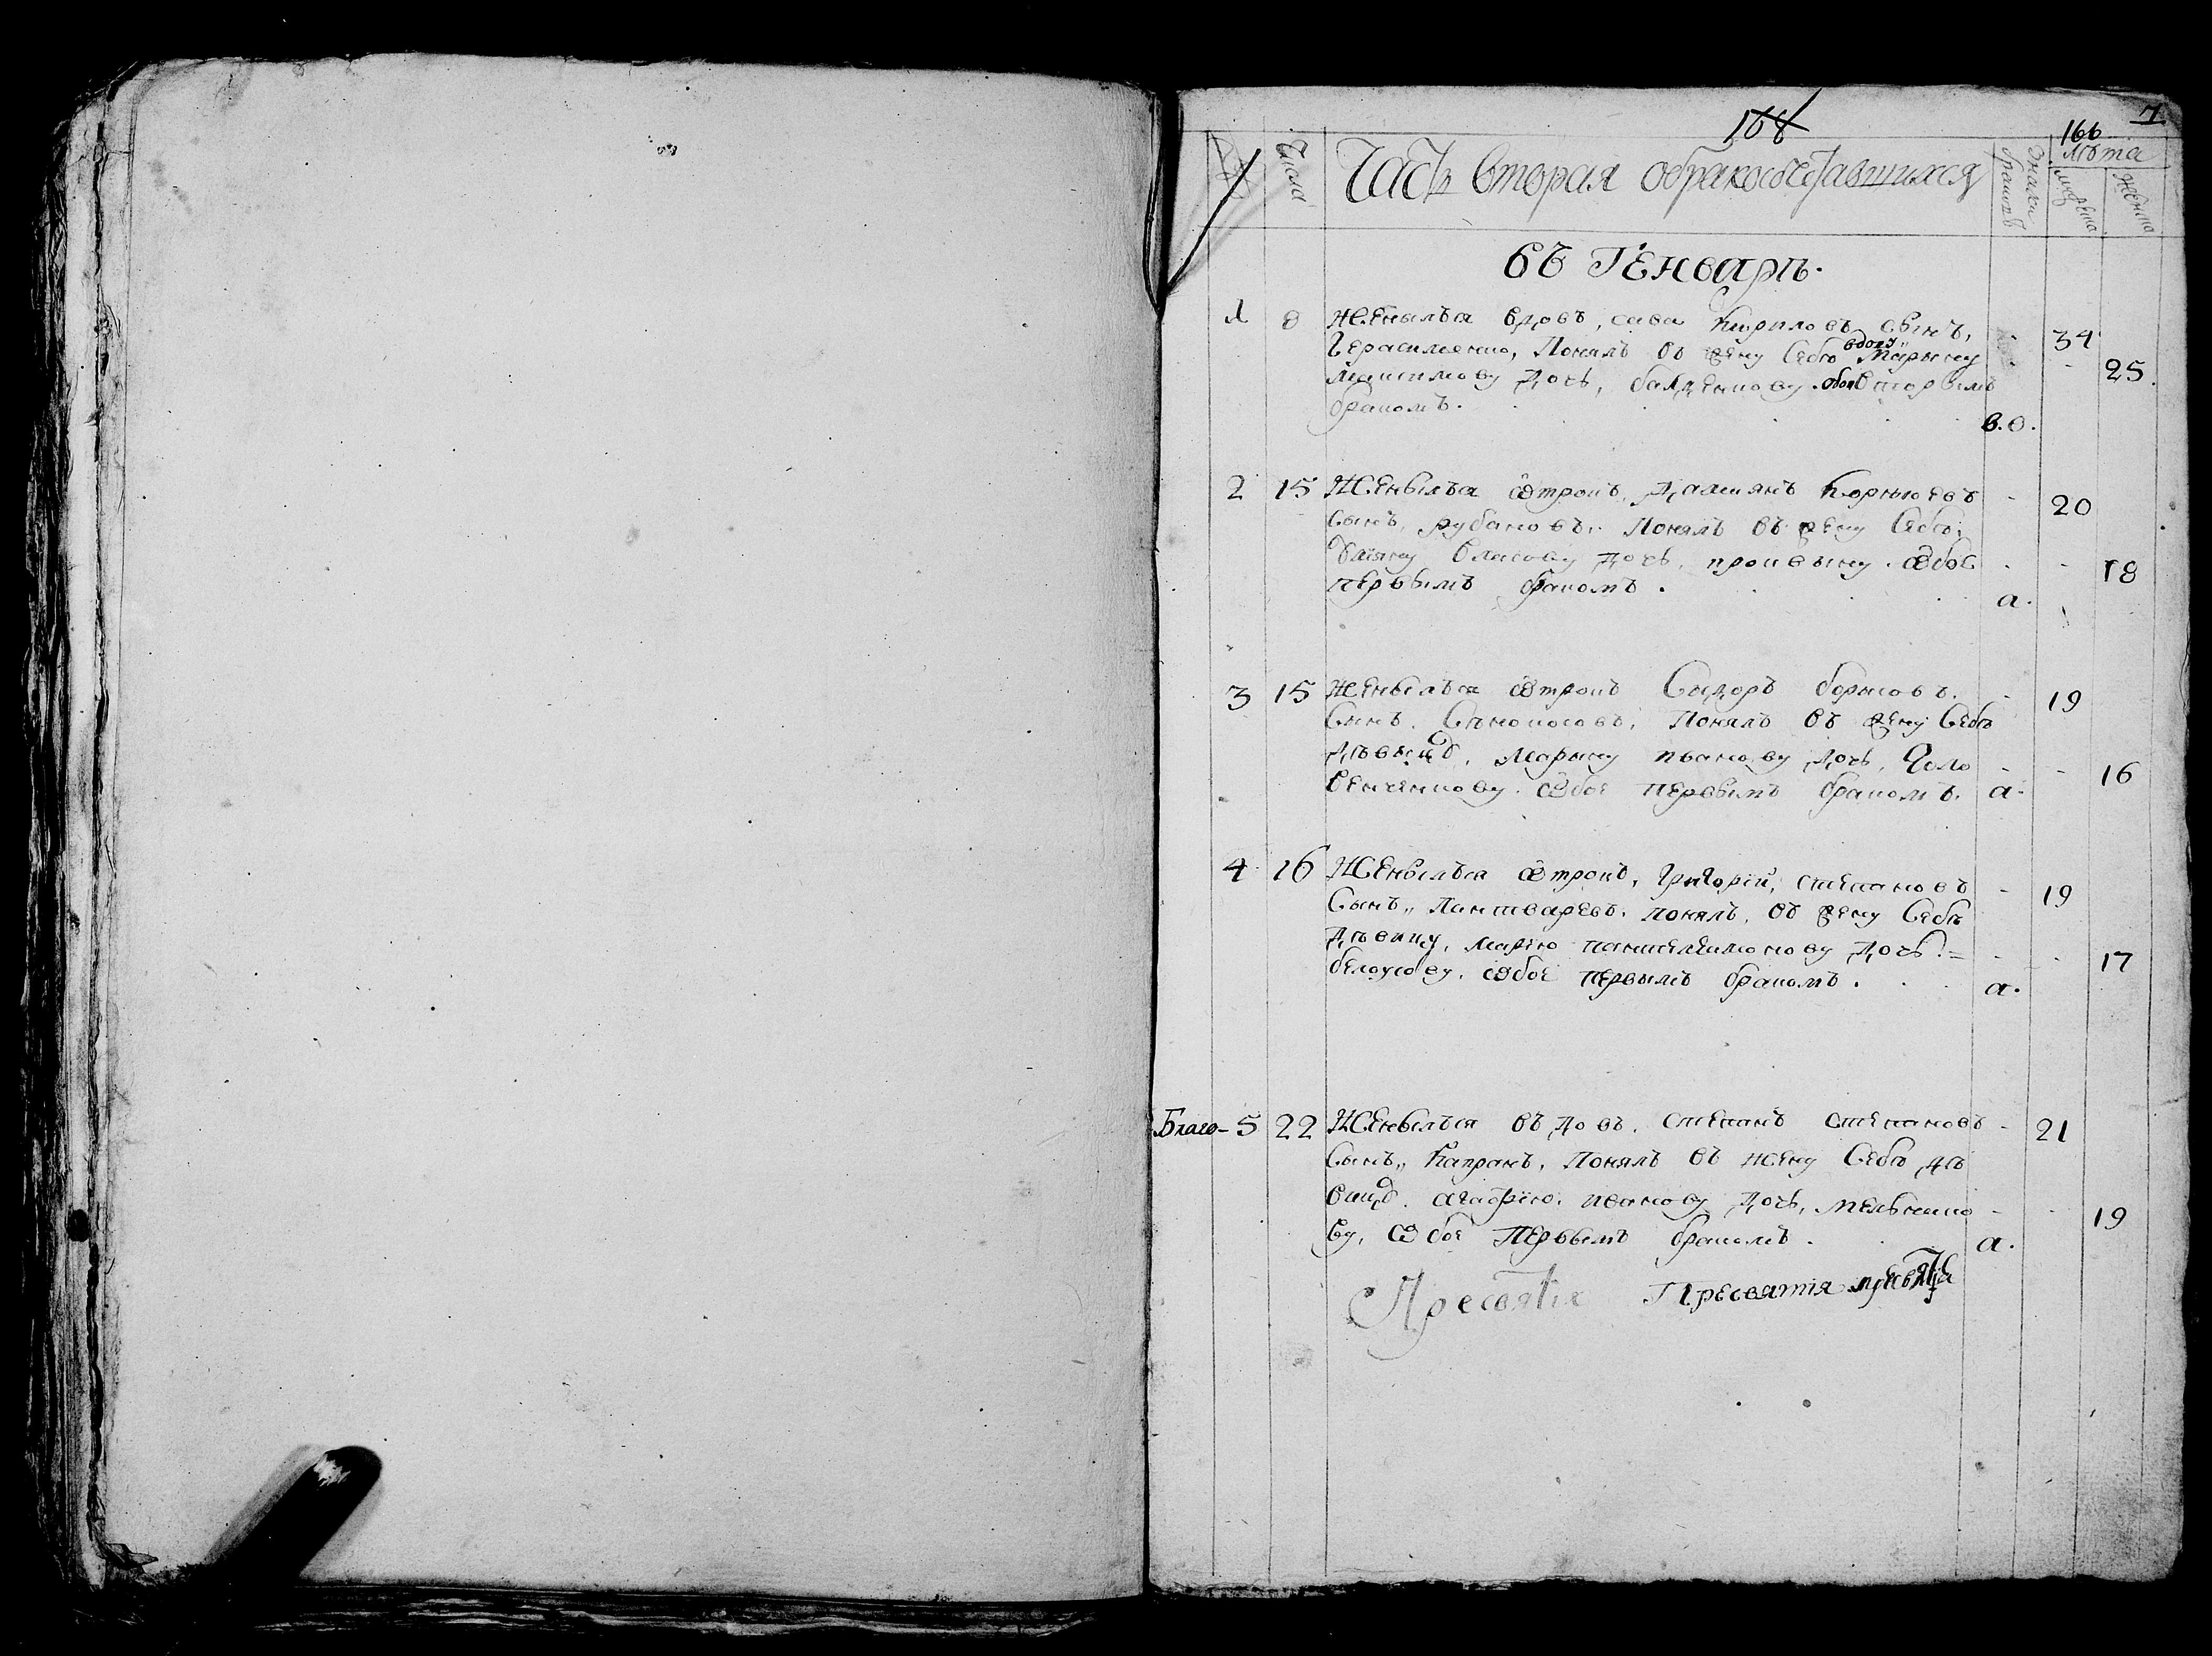 168 166 7
Числа Часть вторая обракосочетавшихся Знаки браковъ Лѣта мужеска женска
въ Генварѣ.
1 8 Женылъся вдовъ, сава Кириловъ сынъ, - 34
Герасименко, Понялъ въ жену Себѣ вдову Марыну - 25.
Максимову дочь, байденкову. обое вторымъ
бракомъ. в.о.
2 15 Женылъся отрокъ, Дамиянъ Корнѣевъ - 20
Сынъ, рубановъ. Понялъ въ жену Себѣ:
Уліяну Власову дочь, . обое - - 18
первымъ бракомъ. а.
3 15 Женылъся отрокъ Сыдоръ борисовъ. - 19
Сынъ. Сѣнокосовъ, Понялъ въ жену Себѣ
дѣвыцу, Марыну иванову дочь, Голо - - 16
венченкову. обое первымъ бракомъ. а.
4 16 Женылъся отрокъ, Григорій, степановъ - 19
Сынъ, Пантваревъ. понялъ, въ жену Себѣ
дѣвицу, марію пантелеимонову дочь. = - - 17
белоусову. обое первымъ бракомъ. а.
Благо- 5 22 Женылъся въдовъ. степанъ степановъ - 21
Сынъ, Капранъ, Понялъ въ жену Себѣ дѣ
вицу. агафію. иванову дочь, мельнико - - 19
ву, обое Первымъ бракомъ. а.
Пресвятія Пресвятія